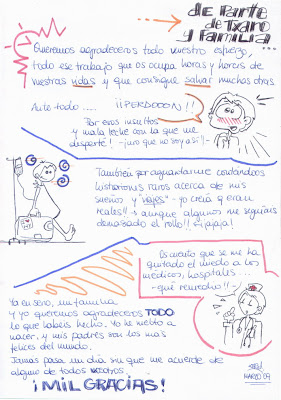 de Parte
de Txaro
y familia...
Queremos agradeceros todo vuestro esfuerzo,
todo ese trabajo que os ocupa horas y horas de
vuestras vidas y que consigue salvar muchas otras.
Ante todo..... ¡¡PERDOOON!!
Por esos insultos
y mala leche con la que me
desperté! - ¡juro que no soy así! -
También por aguantarme contandoos
historiones raros acerca de mis
sueños y "viajes" - yo creía q eran
reales!! - aunque algunos me seguíais
demasiado el rollo!! jajaja!
Es cierto que se me ha
quitado el miedo a los
médicos, hospitales...
- qué remedio!! -
Ya en serio, mi familia
y yo queremos agradeceros TODO
lo que habeis hecho. Yo he vuelto a
nacer, y mis padres son los más
felices del mundo.
Jamas pasa un día sin que me acuerde de
alguno de todos vosotros.
¡MIL GRACIAS!
MARZO 09